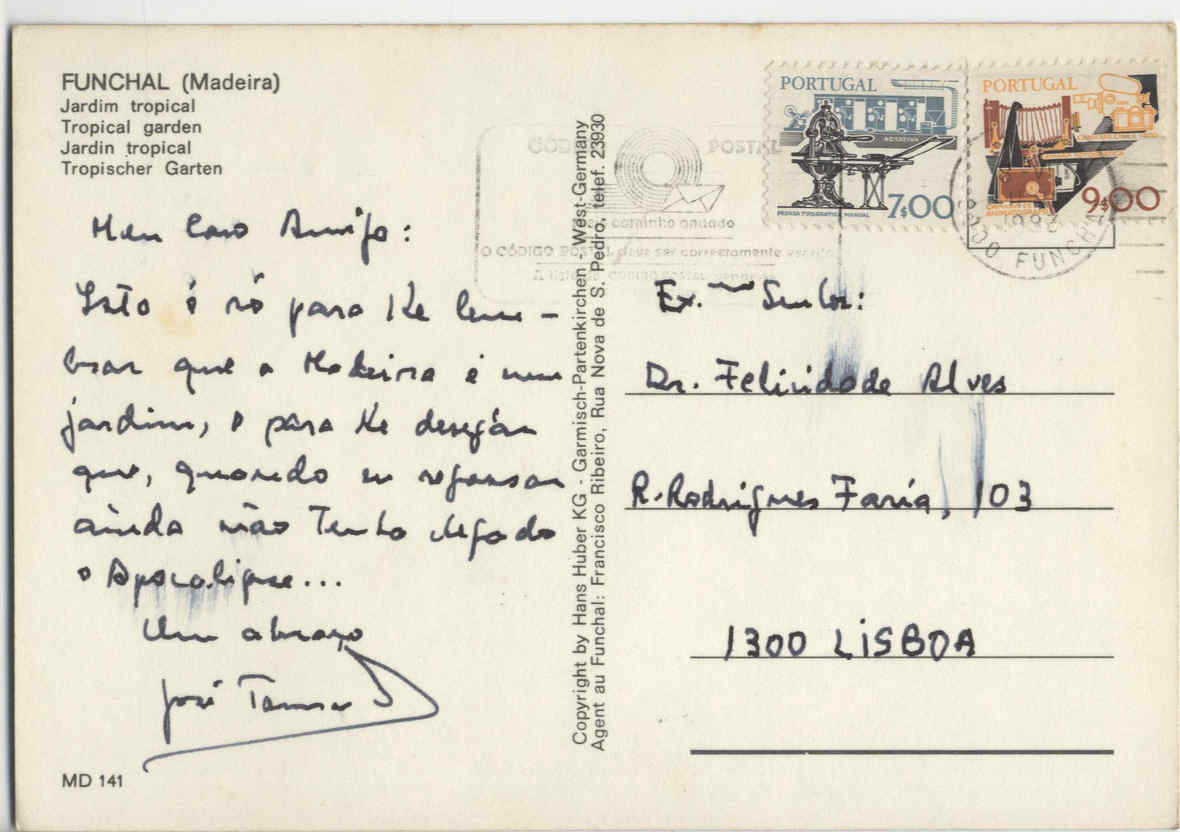 FUNCHAL (Madeira)
Jardim tropical
Tropical garden
Jardin tropical
Tropischer Garten
Meu Caro Amigo:
Isto é só para lhe lem-
brar que a Madeira é um
jardim, e para lhe desejar
que, quando eu regressar
ainda não tenha chegado
o Apocalipse...
Um abraço
José
MD 141
Copyright by Hans Huber KG - Garmisch-Partenkirchen, West-Germany
Agent au Funchal: Francisco Ribeiro, Rua Nova de S. Pedro, telef. 23930
CÓDIGO POSTAL
caminho andado
O CÓDIGO POSTAL deve ser correctamente escrito
PORTUGAL
ROTATIVA
PRENSA TIPOGRÁFICA MANUAL
7$00
PORTUGAL
9$00
FUNCHAL
Ex.mo Senhor:
Dr. Felicidade Alves
R. Rodrigues Faria, 103
1300 LISBOA